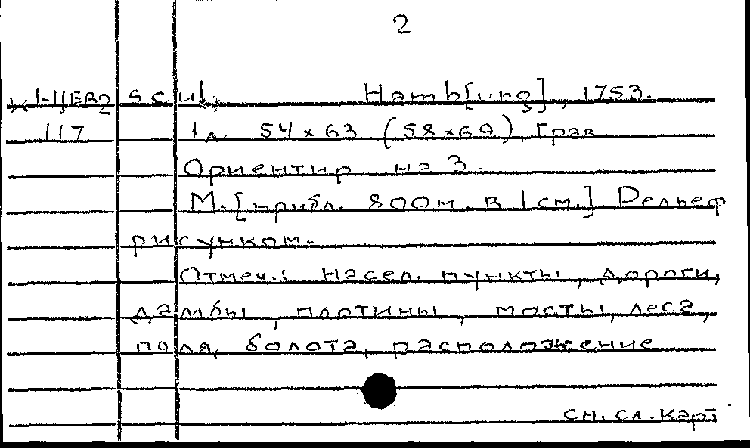 2
sculp. Hamb[urg], 1753.
117 1 л. 54×63 (58×69). Грав.
Ориентир. на З.
М.[прибл. 800м. в 1 см.] Рельеф
рисунком.
Отмеч.: насел. пункты, дороги,
дамбы, плотины, мосты, леса,
поля, болота, расположение
См. сл. карт.